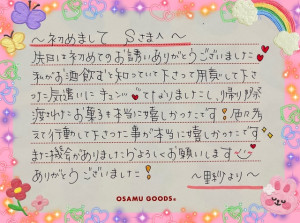 ～初めまして Sさまへ～
先日は初めてのお誘いありがとうございました♥
私がお酒飲めずと知っていて下さって用意して下さ
った気遣いにキュンとしてなりましたし、帰り際
渡されたお菓子も本当に嬉しかったです！色々考
えて行動して下さった事が本当に嬉しかったです
また機会がありましたらよろしくお願いします
ありがとうございました！
～里紗より～
OSAMU GOODS®